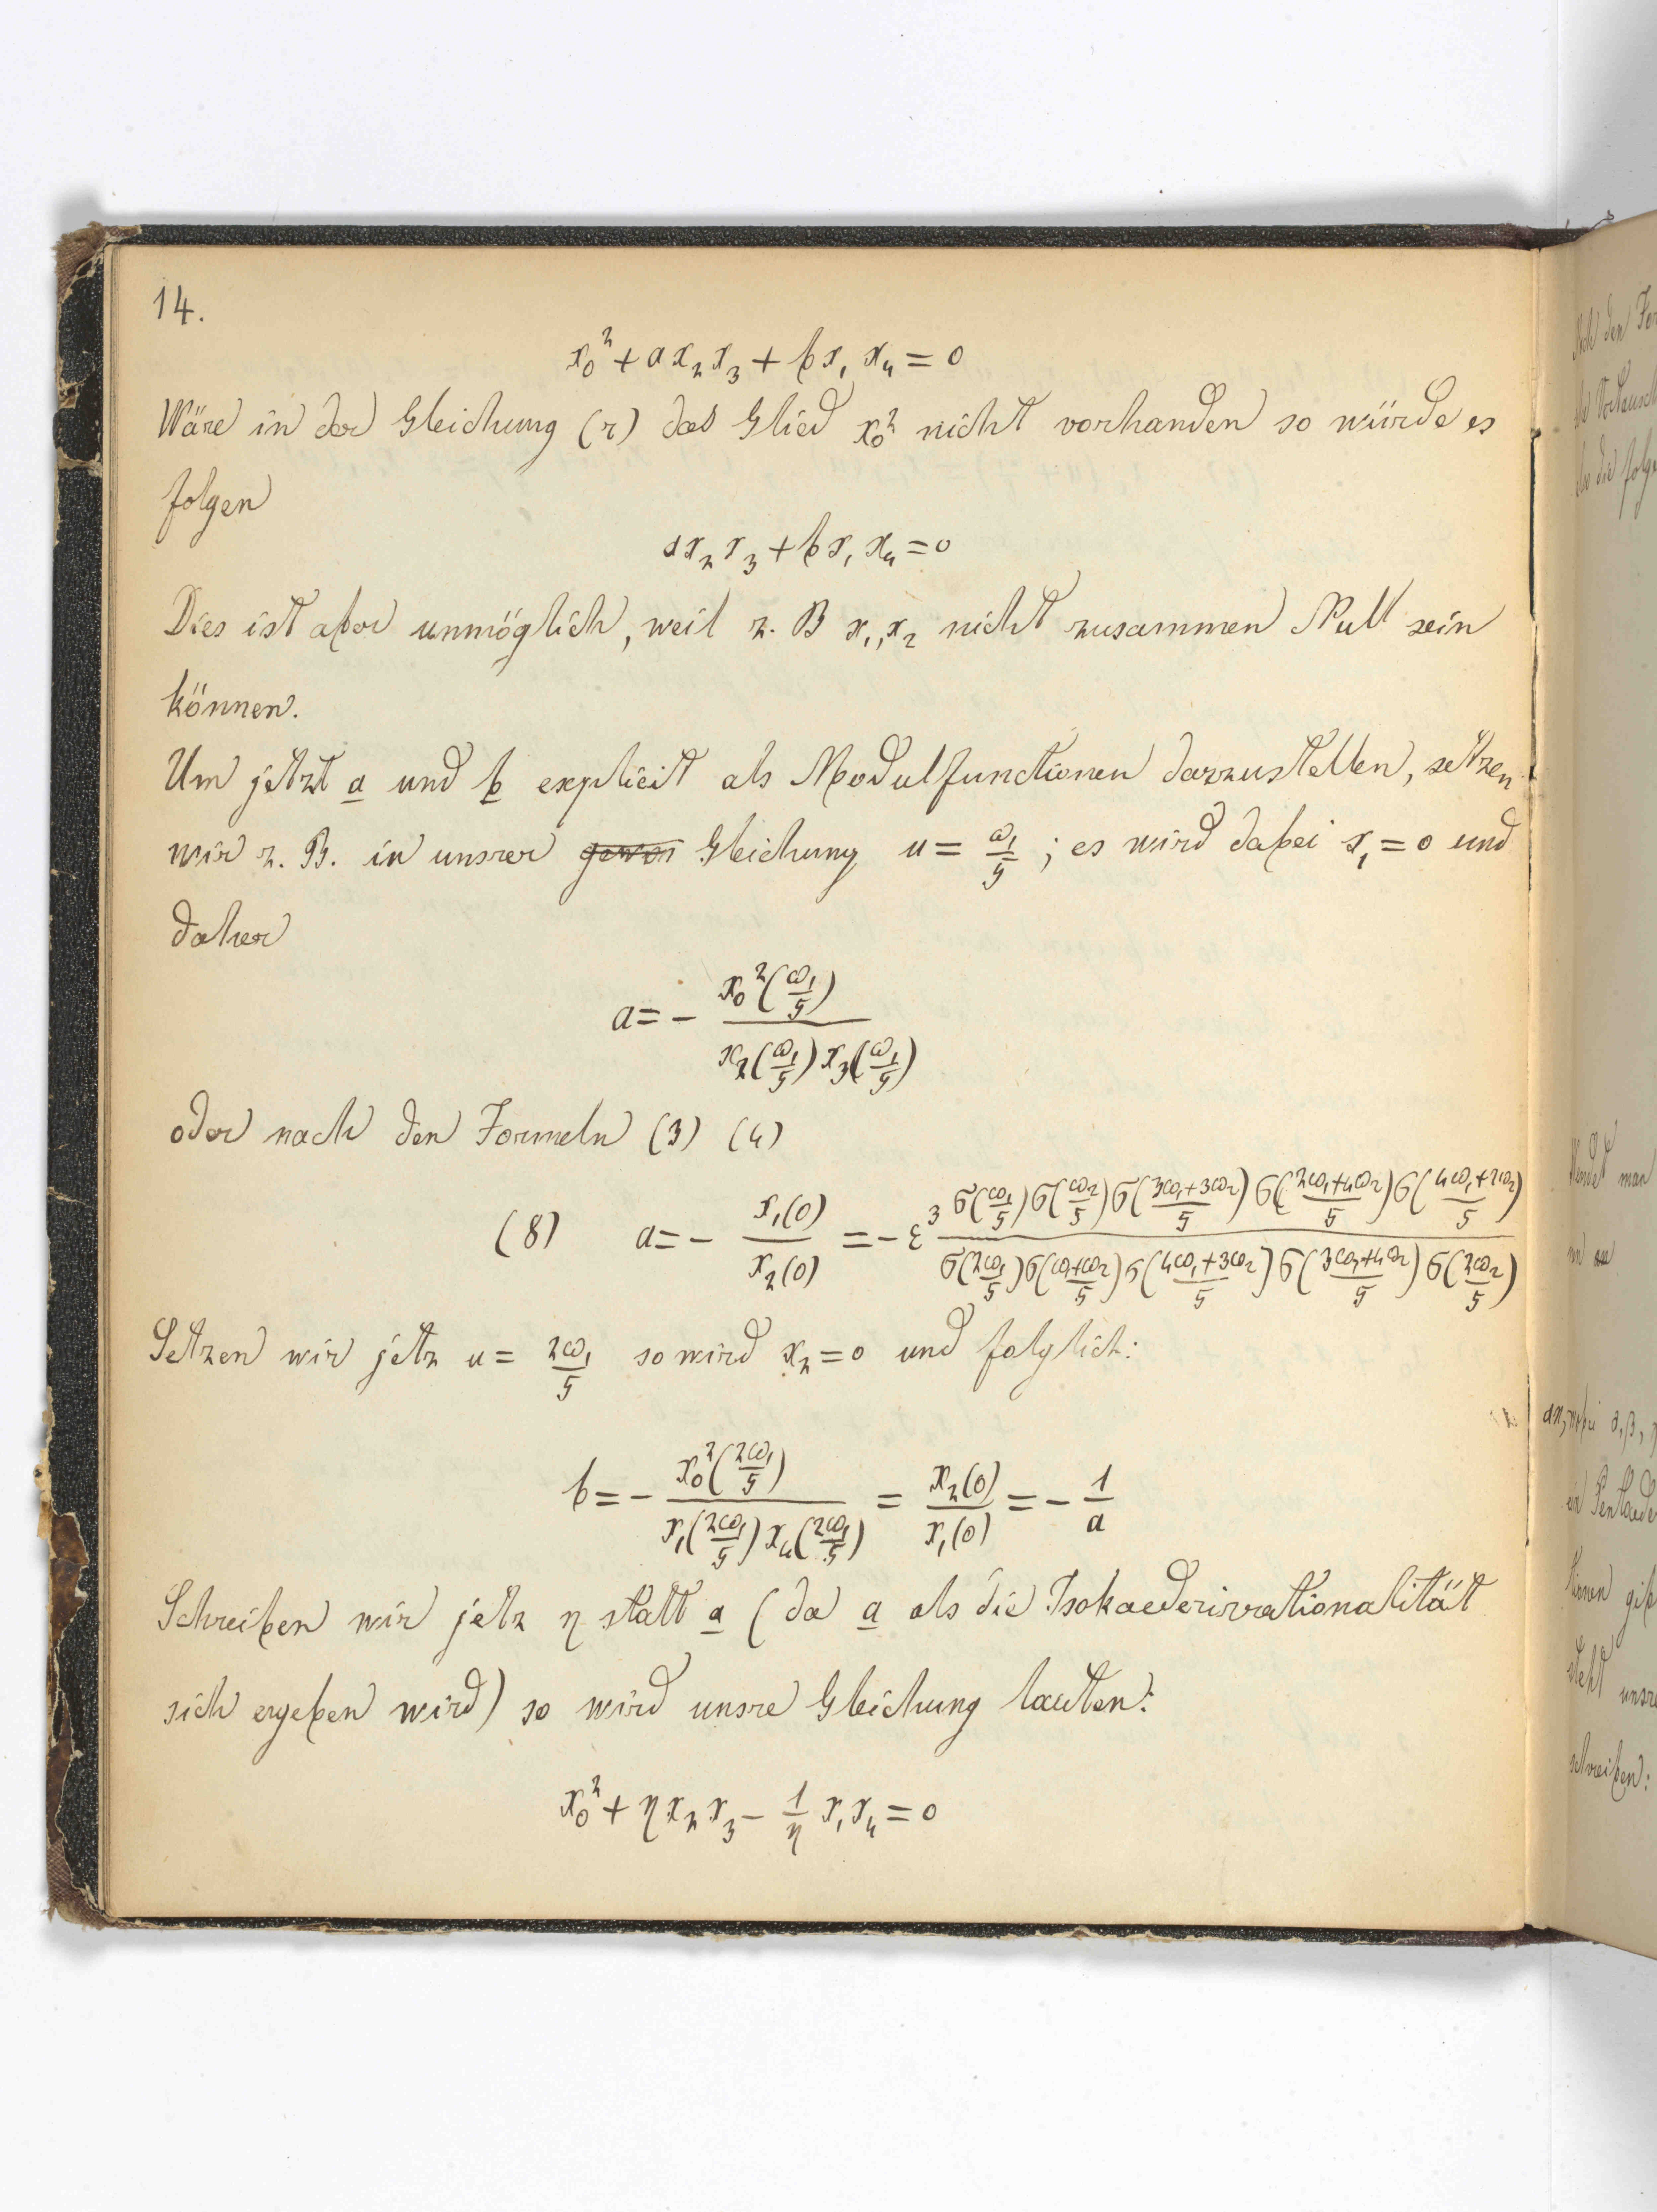 14.
x₀² + a x₂ x₃ + b x₁ x₄ = 0
Wäre in der Gleichung (2) das Glied x₀² nicht vorhanden so würde es
folgen
a x₂ x₃ + b x₁ x₄ = 0
Dies ist aber unmöglich, weil z. B x₁, x₂ nicht zusammen Null sein
können.
Um jetzt a und b explicit als Modulfunctionen darzustellen, setzen
wir z. B. in unsrer Gleichung u = ω₁/5 ; es wird dabei x₁ = 0 und
daher
a = − x₀²(ω₁/5) / x₂(ω₁/5) x₃(ω₁/5)
oder nach den Formeln (3) (4)
(8) a = − x₁(0) / x₂(0) = − ε³ σ(ω₁/5) σ(ω₂/5) σ((3ω₁+3ω₂)/5) σ((2ω₁+4ω₂)/5) σ((4ω₁+2ω₂)/5) / σ(2ω₁/5) σ((ω₁+ω₂)/5) σ((4ω₁+3ω₂)/5) σ((3ω₁+4ω₂)/5) σ(2ω₂/5)
Setzen wir jetz u = 2ω₁/5 so wird x₂ = 0 und folglich:
b = − x₀²(2ω₁/5) / x₁(2ω₁/5) x₄(2ω₁/5) = x₂(0) / x₁(0) = − 1/a
Schreiben wir jetz η statt a (da a als die Isokaederirrationalität
sich ergeben wird) so wird unsre Gleichung lauten:
x₀² + η x₂ x₃ − 1/η x₁ x₄ = 0